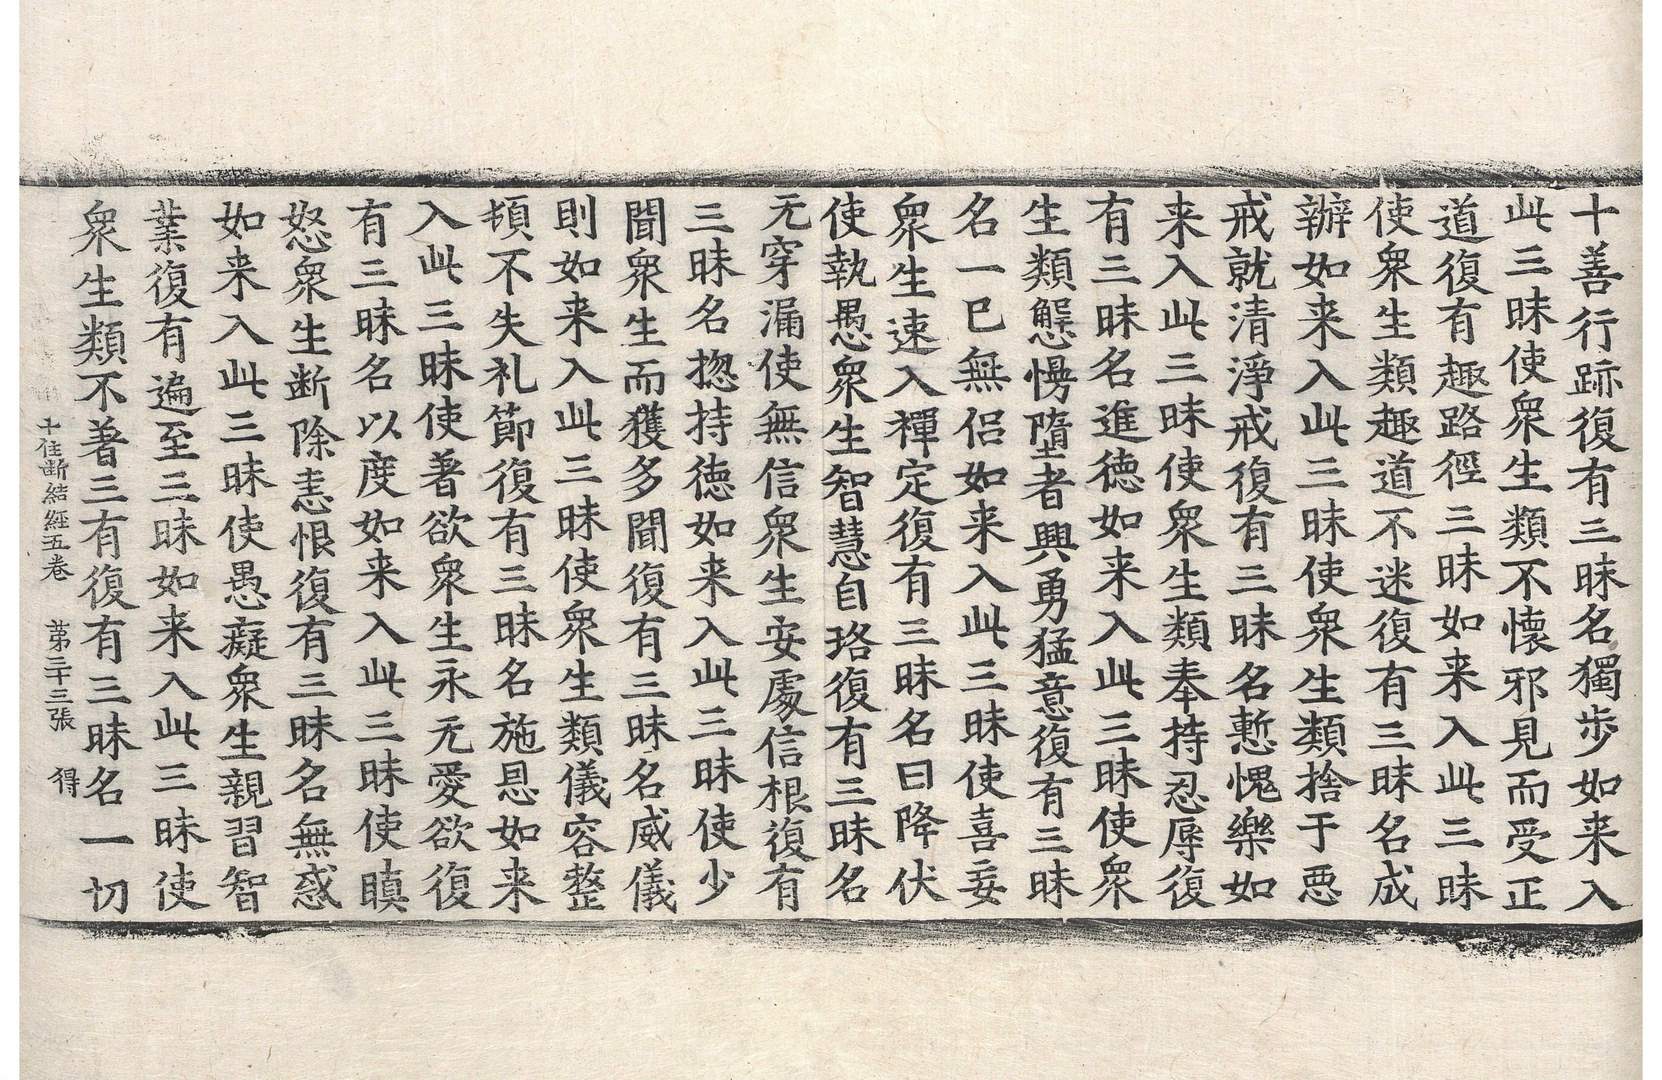 十善行跡復有三昧名獨步如来入
此三昧使衆生類不懷邪見而受正
道復有趣路徑三昧如来入此三昧
使衆生類趣道不迷復有三昧名成
辦如来入此三昧使衆生類捨于惡
戒就清淨戒復有三昧名慙愧樂如
来入此三昧使衆生類奉持忍辱復
有三昧名進德如来入此三昧使衆
生類懈慢墮者興勇猛意復有三昧
名一巳無侣如来入此三昧使喜妄
衆生速入禪定復有三昧名曰降伏
使執愚衆生智慧自珞復有三昧名
无穿漏使無信衆生安處信根復有
三昧名揔持徳如来入此三昧使少
聞衆生而獲多聞復有三昧名威儀
則如来入此三昧使衆生類儀容整
頓不失礼節復有三昧名施恩如来
入此三昧使著欲衆生永无愛欲復
有三昧名以度如来入此三昧使瞋
怒衆生断除恚恨復有三昧名無惑
如来入此三昧使愚癡衆生親習智
業復有遍至三昧如来入此三昧使
衆生類不著三有復有三昧名一切
十住断結經五卷　第二十三張　得